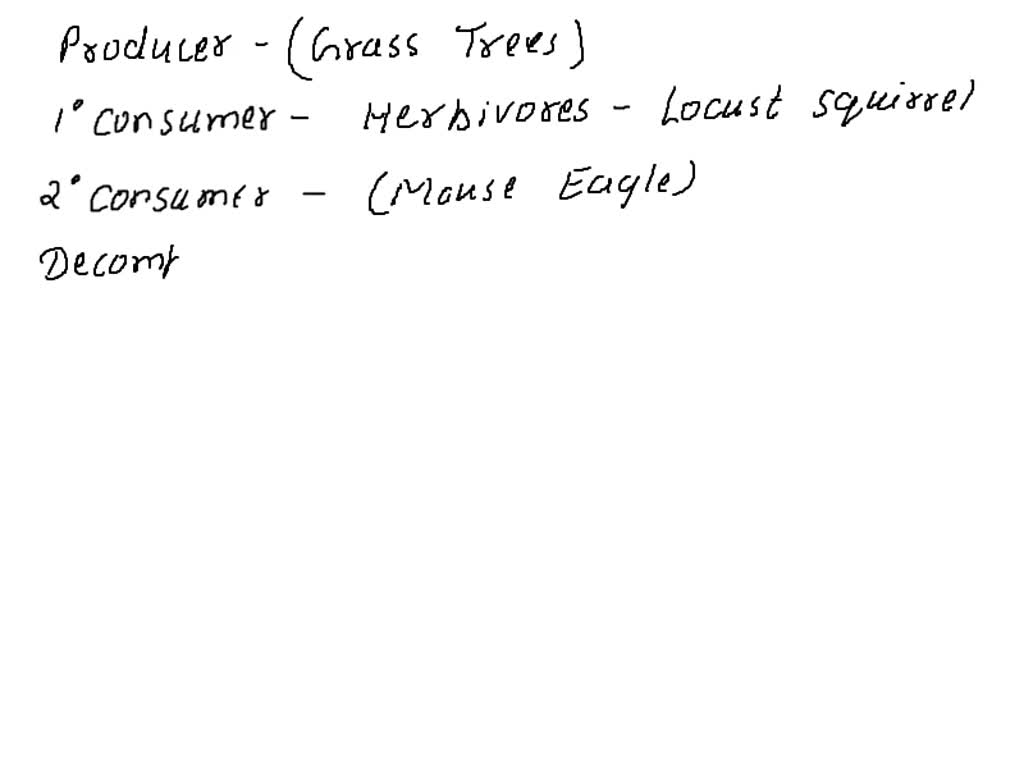 Producer - (Grass Trees)
1° Consumer - Herbivores - Locust squirrel
2° Consumer - (Mouse Eagle)
Decomp